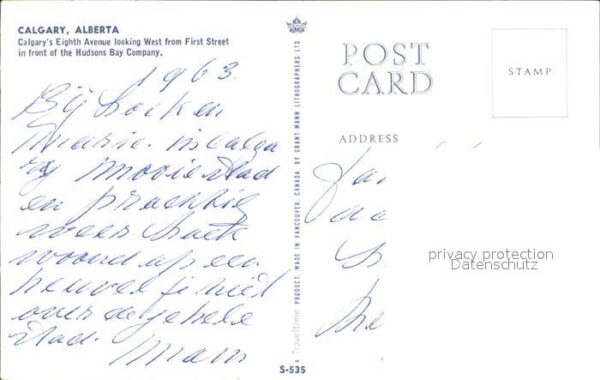 CALGARY, ALBERTA
Calgary's Eighth Avenue looking West from First Street
in front of the Hudsons Bay Company.
1963.
Bij
Marie. in Calga
ry mooie stad
en prachtig
weer
woond op een
heuvel
over de gehele
stad.
Mam
S-535
Traveltime PRODUCT MADE IN VANCOUVER, CANADA, BY GRANT MANN LITHOGRAPHERS LTD
POST
CARD
STAMP
ADDRESS
privacy protection
Datenschutz